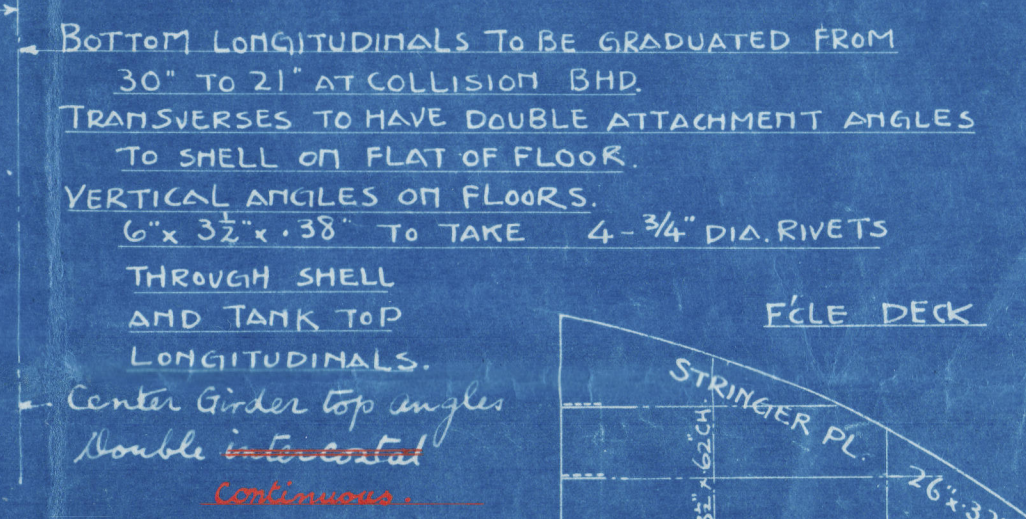 BOTTOM LONGITUDINALS TO BE GRADUATED FROM
30" TO 21" AT COLLISION BHD.
TRANSVERSES TO HAVE DOUBLE ATTACHMENT ANGLES
TO SHELL ON FLAT OF FLOOR.
VERTICAL ANGLES ON FLOORS.
6" x 3½" x .38" TO TAKE 4 - 3/4" DIA. RIVETS
THROUGH SHELL
AND TANK TOP
LONGITUDINALS.
Center Girder top angles
Double intercostal
Continuous.
F'CLE DECK
STRINGER PL.
32" x .62" CH
26" x .32